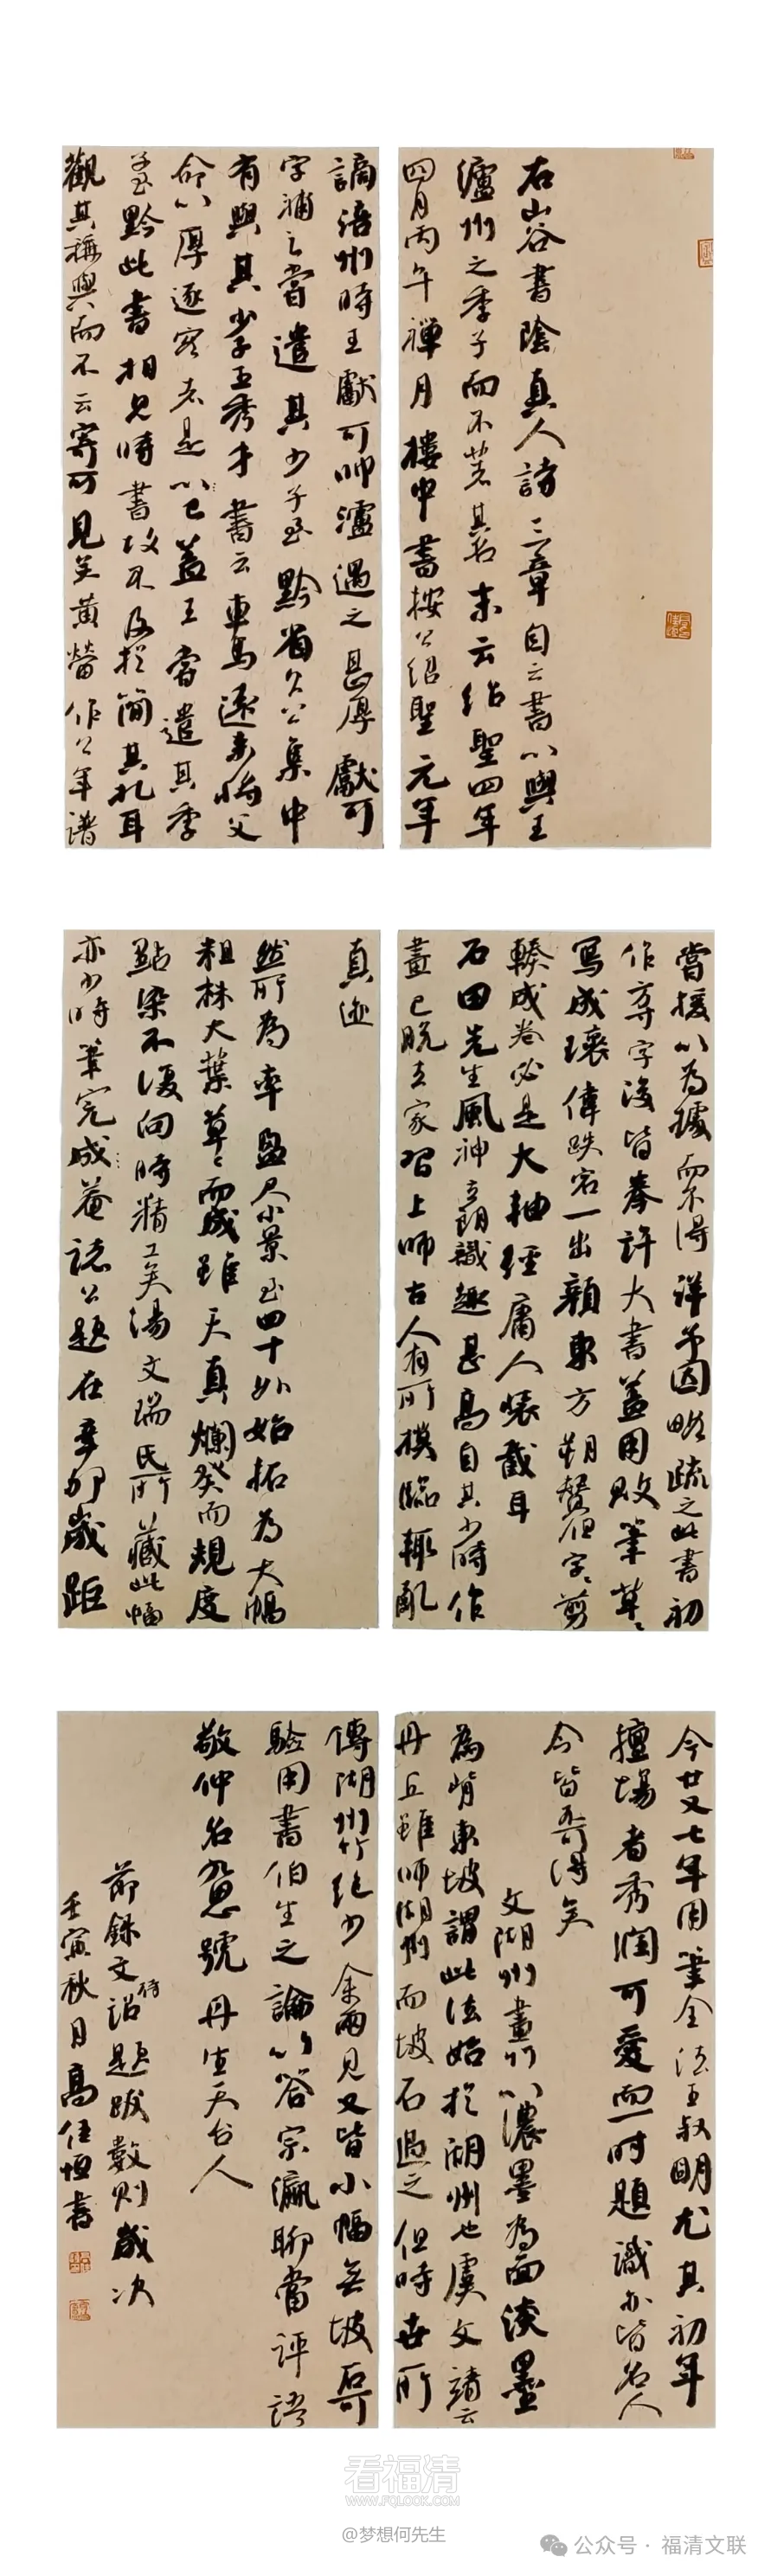 右山谷書陰真人詩三章自云書以與王
瀘州之季子而不著其名末云紹聖四年
四月丙午禪月樓中書按公紹聖元年
謫涪州時王獻可帥瀘遇之甚厚獻可
字補之嘗遣其少子至黔省公公集中
有與其少子王秀才書云車馬遠來將父
命以厚逐客者是以已蓋王嘗遣其季
至黔此書相見時書故不及於簡其札耳
觀其稱與而不云寄可見矣黃㽦作公年譜
嘗援以為據而不得詳予因略疏之此書初
作尋字後皆拳許大書蓋用敗筆草草
寫成瓌偉跌宕一出顏東方朔贊但字字剪
輳成卷必是大軸經庸人裝截耳
石田先生風神玄朗識趣甚高自其少時作
畫已脫去家習上師古人有所模臨輒亂
真迹
然所為率盈尺小景至四十外始拓為大幅
粗株大葉草草而成雖天真爛發而規度
點染不復向時精工矣湯文瑞氏所藏此幅
亦少時筆完成菴誌公題在辛卯歲距
今廿又七年用筆全法王叔明尤其初年
擅場者秀潤可愛而一時題識亦皆名人
今皆不可得矣
文湖州畫竹以濃墨為面淡墨
為背東坡謂此法始於湖州也虞文靖云
丹丘雖師湖州而坡石過之但時世所
傳湖州竹絕少余兩見又皆小幅無坡石可
驗用書伯生之論以答宗瀛聊當評語
敬仲名九思號丹丘生天台人
節錄文待詔題跋數則歲次
壬寅秋月高任恒書
看福清
WWW.FQLOOK.COM
@梦想何先生
公众号 · 福清文联